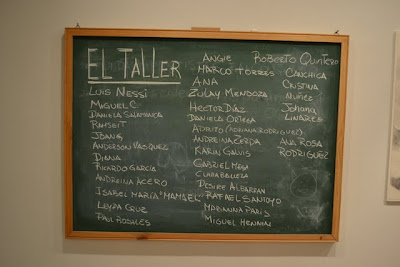 EL TALLER
LUIS NESSI
MIGUEL C.
DANIELA SALAMANCA
RAMSEIT
ANDERSON VASQUEZ
DIANA
RICARDO GARCÍA
ANDREINA ACERO
ISABEL MARÍA "MAMAEL"
LEYDA CRUZ
PAUL ROSALES
ANGIE
MARCO TORRES
ANA
ZULAY MENDOZA
HECTOR DÍAZ
DANIELA ORTEGA
(ADRIANA RODRIGUEZ)
ANDREINA ZERPA
KARIN GALVIS
GABRIEL MEZA
DENICE ALBARRAN
RAFAEL SANTOYO
MARIANNA PARIS
MIGUEL
ROBERTO QUINTERO
CANCHICA
CRISTINA
NUÑEZ
JOHANA
LINARES
ANA ROSA
RODRIGUEZ